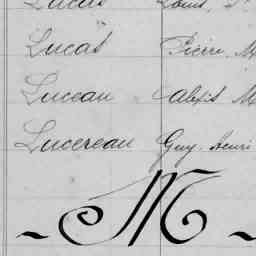 Lucas Louis
Lucas Pierre M
Luceau Alexis M
Lucereau Guy Henri
~ M ~